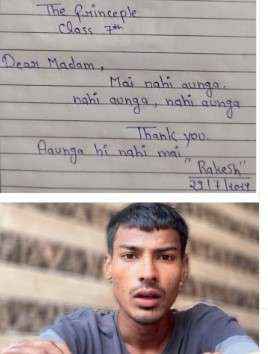 The Princeple
Class 7th
Dear Madam,
Mai nahi aunga.
nahi aunga, nahi aunga
Thank you.
Aaunga hi nahi mai
"Rakesh"
29/7/2019